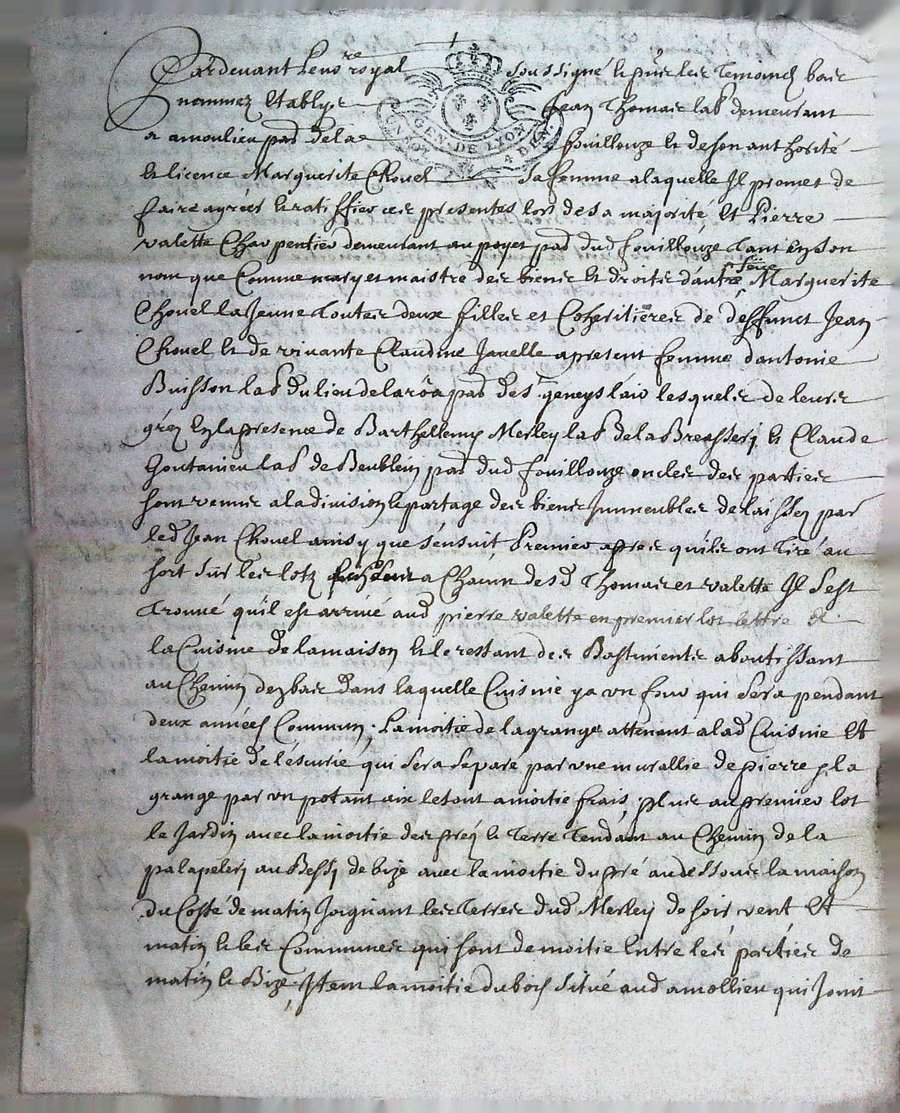 Pardevant le no.re royal soussigné et p.nts les temoins bas
nommez Establys Jean Thomas lab demeurant
a amoulieu par.d de la fouillouze et de son authorité
et licence Marguerite Chovel sa femme a laquelle Jl promet de
faire agréer et ratiffier ces presentes lors de sa majorité, Et Pierre
valette Charpentier demeurant au poyet par.d dud fouillouze Tant en son
nom que Comme mary et maistre des biens et droits d'autre Marguerite
Chovel la Jeune Toutes deux filles et Coheritieres de deffunct Jean
Chovel et de vivante Claudine Javelle apresent femme d'antoine
Buisson lab du lieu de la par.d de S.t geneys lesquels de leurs
gréz En la presence de Barthellemy Merley lab de la Breassery et Claude
lab de par.d dud fouillouze oncles des parties
sont venus a la division et partage des biens Jmmeubles delaissez par
led Jean Chovel ainsy que s'ensuit Premier apres qu'ils ont Tiré au
sort sur les lotz a Chacun desd Thomas et valette Jl s'est
Trouvé qu'il est arrivé aud pierre valette en premier lot lettre
la Cuisine de la maison et le restant des Bastiments aboutissant
au Chemin de bas dans laquelle Cuisine ya un four qui sera pendant
deux années Commun, La moitié de la grange attenant a lad Cuisine Et
la moitié de l'escurie qui sera separé par une muraille de pierre la
grange par un le tout a moitié frais, plus au premier lot
le Jardin avec la moitié des prez et Terre Tendant au Chemin de la
au Bessy de bize avec la moitié du pré audessous la maison
du Costé de matin Joignant les Terres dud Merley de soir vent Et
matin et les Communes qui sont de moitié Entre les parties de
matin et Bize, Jtem la moitié du bois situé aud amollieu qui Joint
GEN. DE LYON